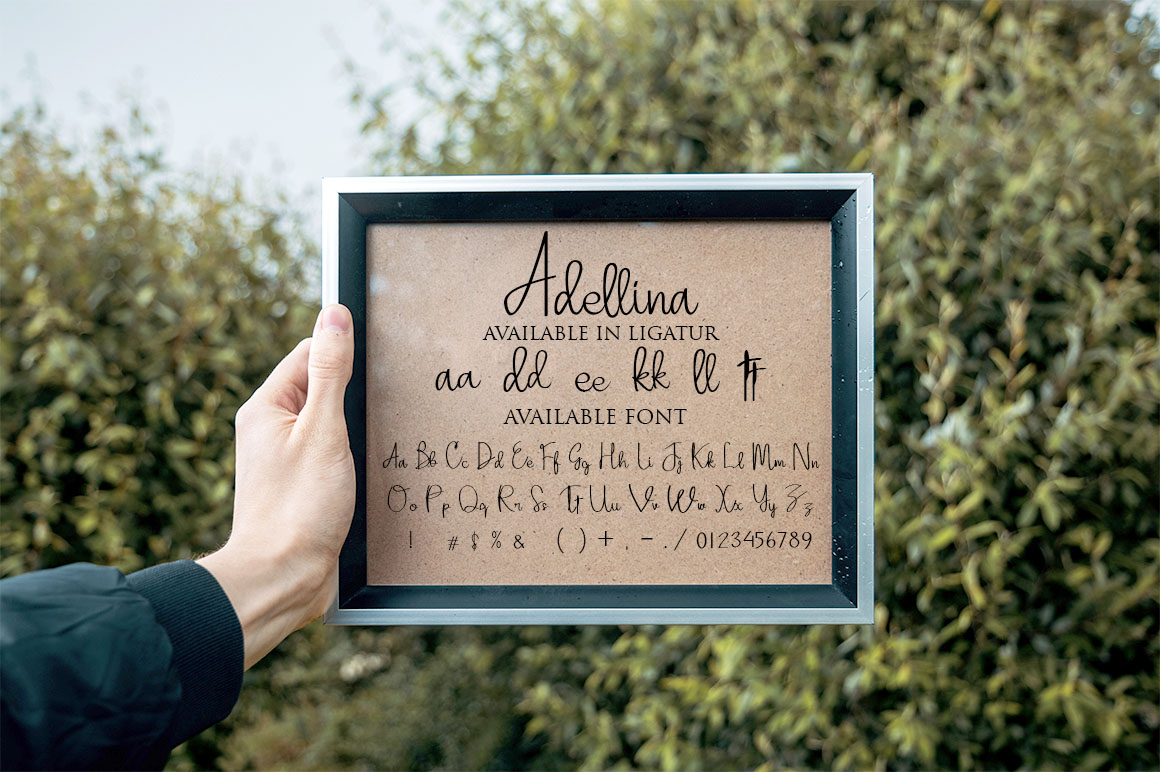 Adellina
AVAILABLE IN LIGATUR
aa dd ee kk ll tt
AVAILABLE FONT
Aa Bb Cc Dd Ee Ff Gg Hh Ii Jj Kk Ll Mm Nn
Oo Pp Qq Rr Ss Tt Uu Vv Ww Xx Yy Zz
! # $ % & ( ) + , - . / 0123456789